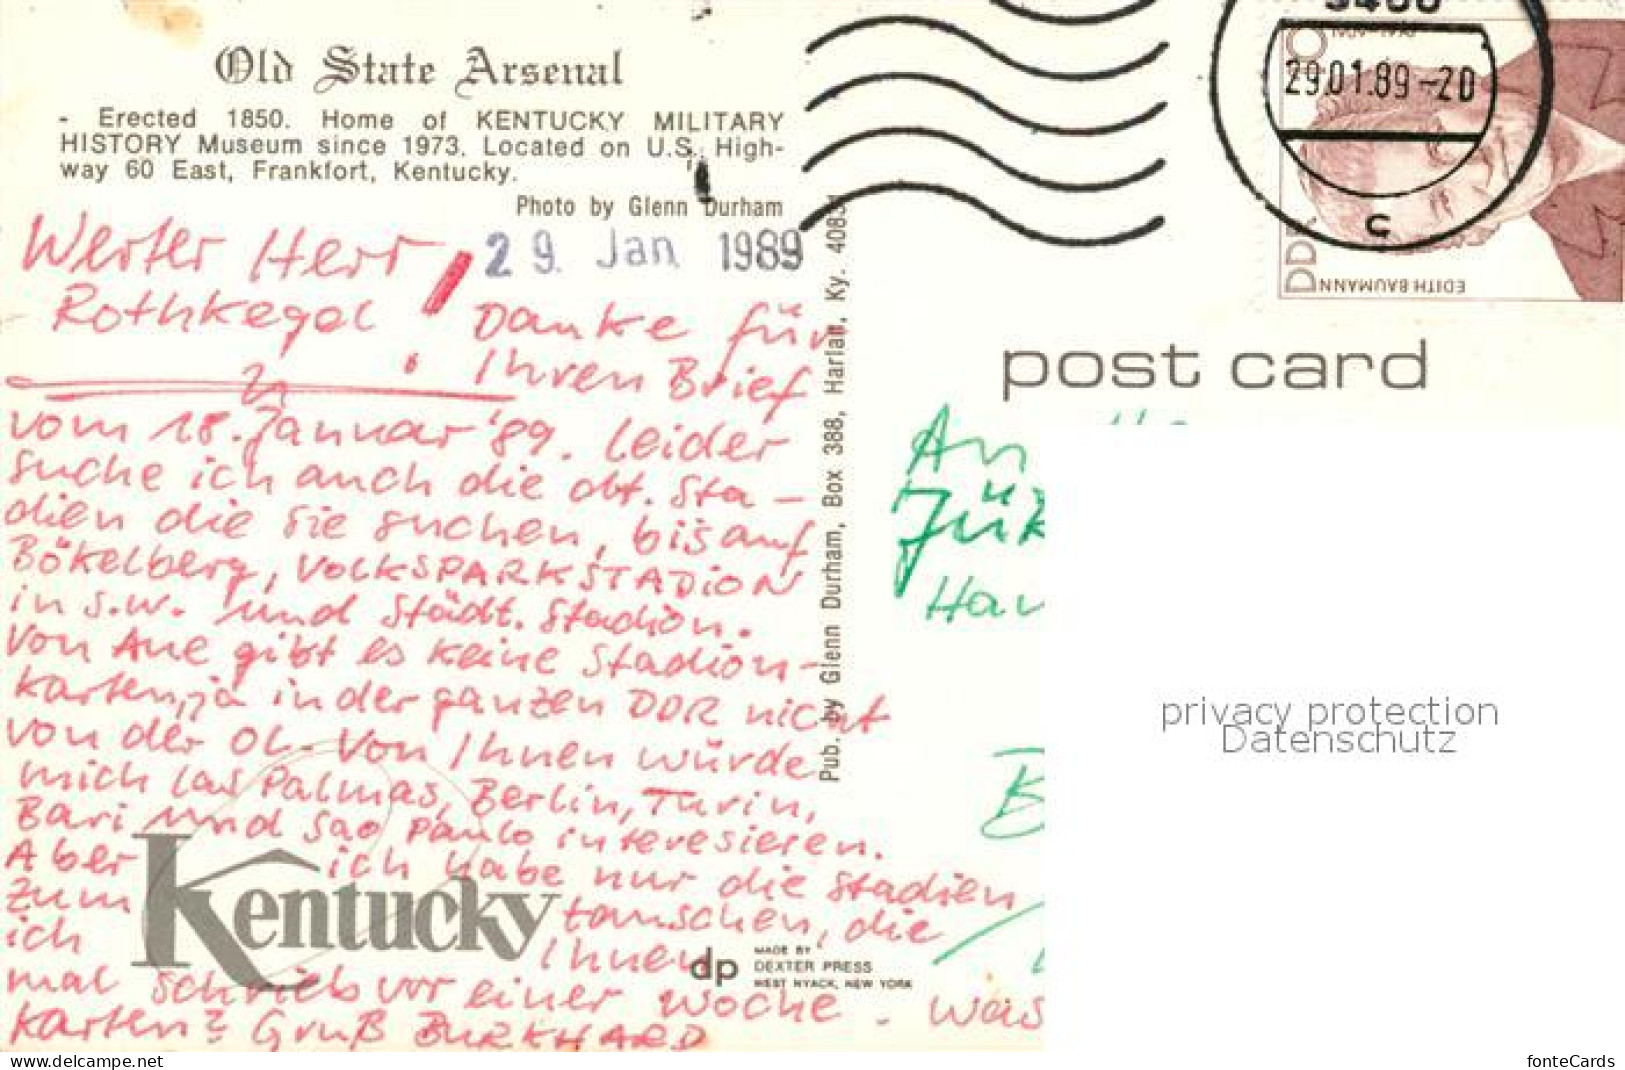 Old State Arsenal
- Erected 1850. Home of KENTUCKY MILITARY
HISTORY Museum since 1973. Located on U.S. High-
way 60 East, Frankfort, Kentucky.
Photo by Glenn Durham
29. Jan 1989
Werter Herr
Rothkegel! Danke für
Ihren Brief
vom 18. Januar '89. Leider
suche ich auch die abt. Sta-
dien die Sie suchen, bis auf
Bökelberg, VOLKSPARKSTADION
in S.W. und Städt. Stadion.
Von Aue gibt es keine Stadion-
karten, ja in der ganzen DDR nicht
von der OL. Von Ihnen würde
mich Las Palmas, Berlin, Turin,
Bari und Sao Paulo interesieren.
Aber ich habe nur die Stadien
zum tauschen, die
ich Ihnen
mal schrieb vor einer Woche. Was
Karten? Gruß BURKHARD
Kentucky
dp
MADE BY
DEXTER PRESS
WEST NYACK, NEW YORK
Pub. by Glenn Durham, Box 388, Harlan, Ky. 40831
29.01.89-20
c
DDR
EDITH BAUMANN
post card
An
Jük
Hau
B
privacy protection
Datenschutz
www.delcampe.net
fonteCards